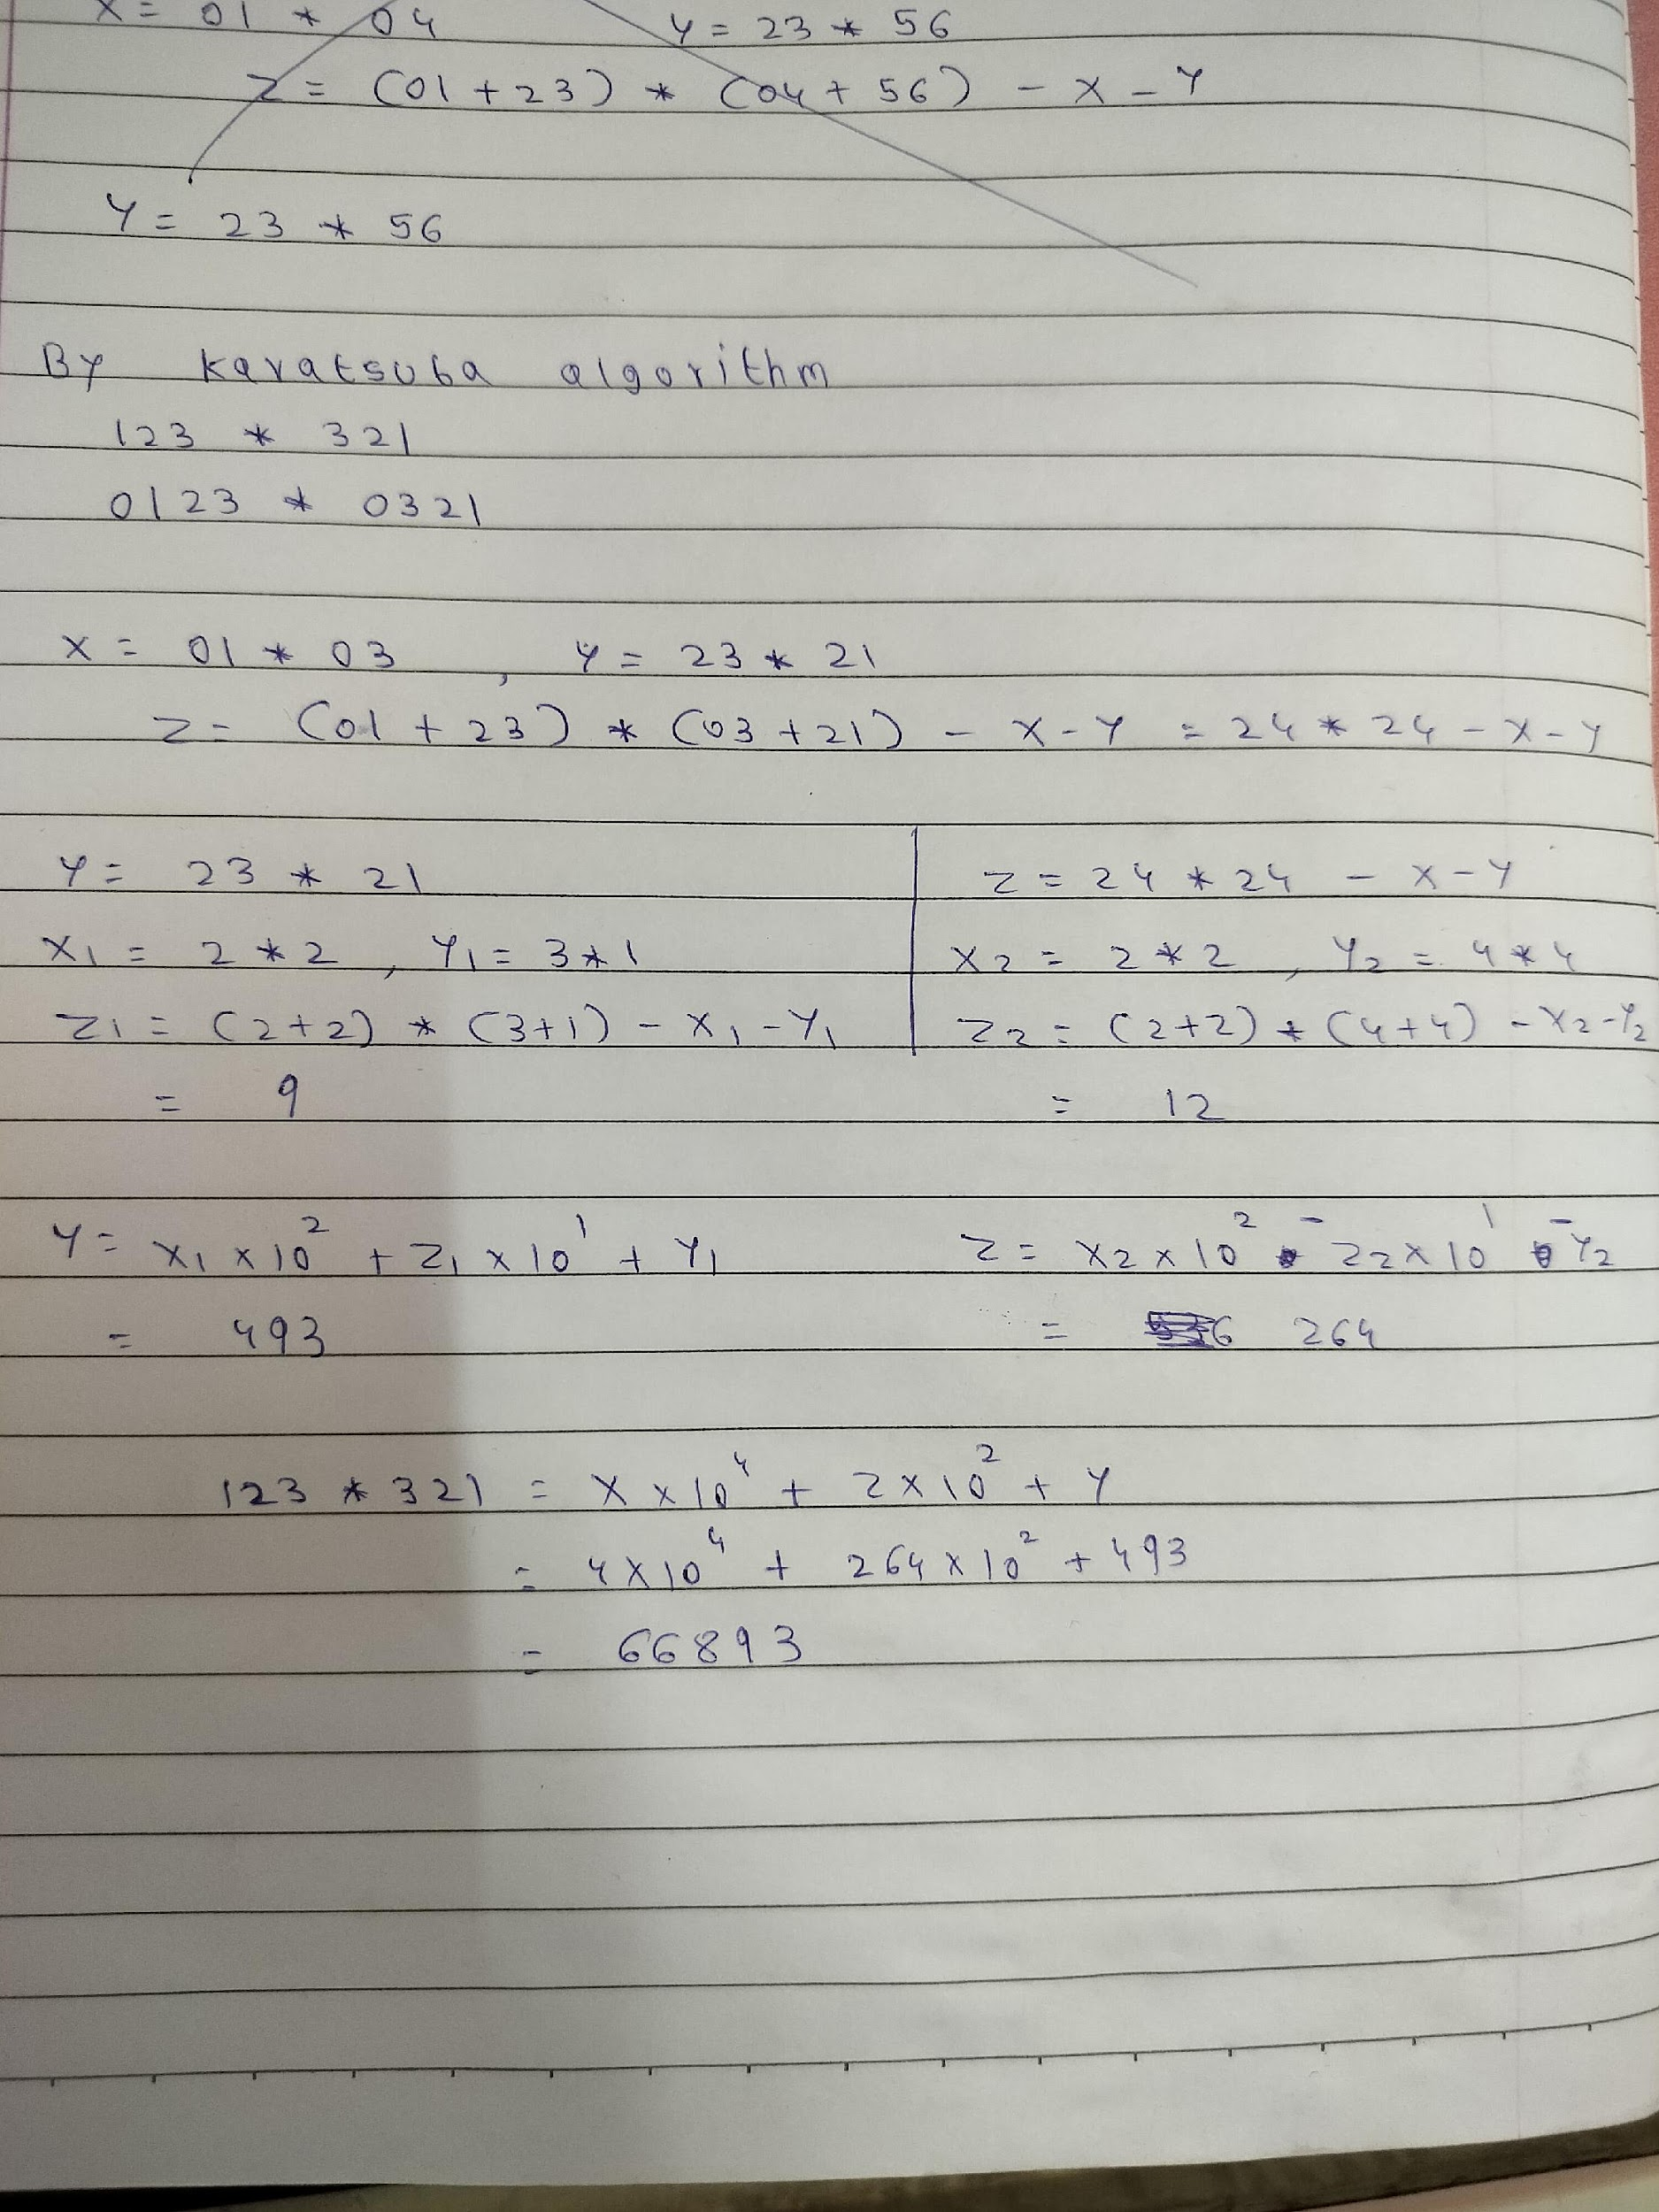 X = 01 * 04 Y = 23 * 56
Z = (01 + 23) * (04 + 56) - X - Y
Y = 23 * 56
By Karatsuba algorithm
123 * 321
0123 * 0321
X = 01 * 03 , Y = 23 * 21
Z = (01 + 23) * (03 + 21) - X - Y = 24 * 24 - X - Y
Y = 23 * 21 Z = 24 * 24 - X - Y
X₁ = 2 * 2 , Y₁ = 3 * 1 X₂ = 2 * 2 , Y₂ = 4 * 4
Z₁ = (2+2) * (3+1) - X₁ - Y₁ Z₂ = (2+2) * (4+4) - X₂ - Y₂
= 9 = 12
Y = X₁ × 10² + Z₁ × 10¹ + Y₁ Z = X₂ × 10² - Z₂ × 10¹ - Y₂
= 493 = 264
123 * 321 = X × 10⁴ + Z × 10² + Y
= 4 × 10⁴ + 264 × 10² + 493
= 66893